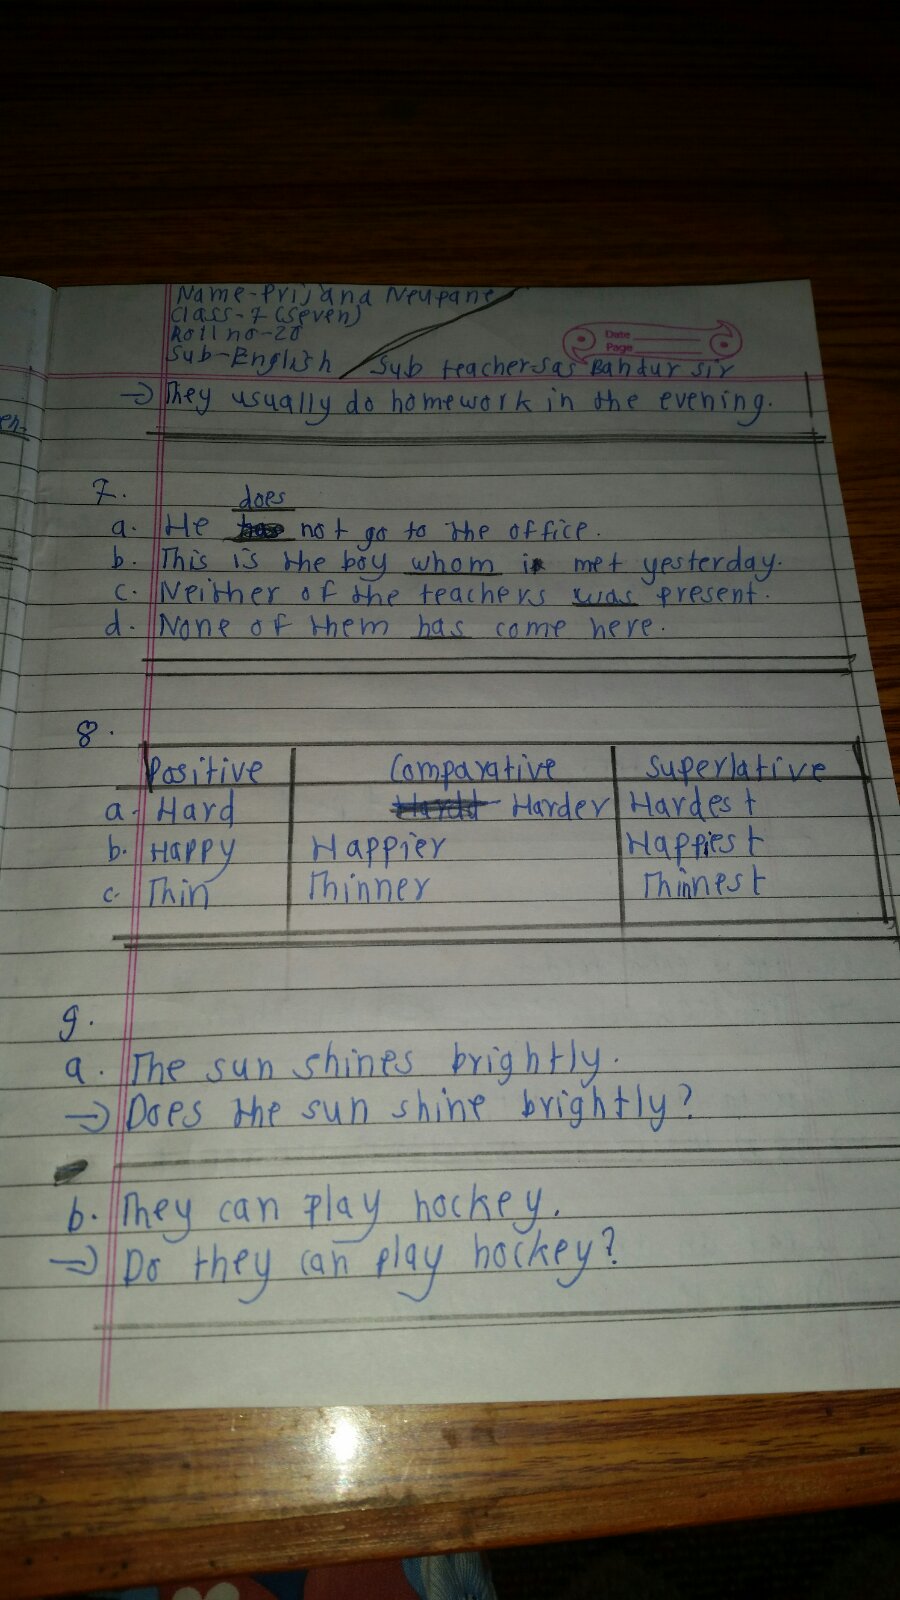 Name-Prijana Neupane
Class-7 (Seven)
Roll no-20
Sub-English
Date
Page
Sub teacher-Sas Bahdur sir
⇒ They usually do homework in the evening.
7.
does
a. He not go to the office.
b. This is the boy whom i met yesterday.
c. Neither of the teachers was present.
d. None of them has come here.
8.
Positive Comparative Superlative
a. Hard Harder Hardest
b. Happy Happier Happiest
c. Thin Thinner Thinnest
9.
a. The sun shines brightly.
⇒ Does the sun shine brightly?
b. They can play hockey.
⇒ Do they can play hockey?